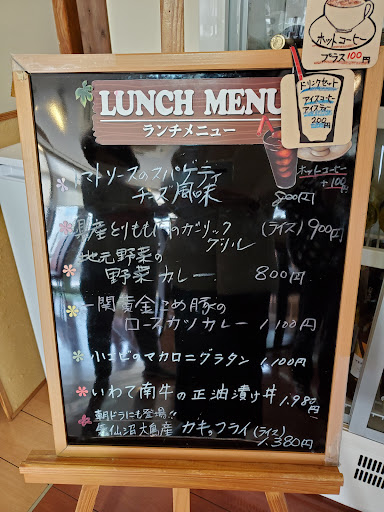 ホットコーヒー
プラス100円
ドリンクセット
アイスコーヒー
アイスティー
200円
LUNCH MENU
ランチメニュー
ホットコーヒー
+100円
トマトソースのスパゲティ
チーズ風味 800円
県産とりももの ガーリック
グリル (ライス) 900円
地元野菜の
野菜カレー 800円
一関黄金こめ豚の
ロースカツカレー 1,100円
小エビのマカロニグラタン 1,100円
いわて南牛の正油漬け丼 1,980円
朝ドラにも登場!!
気仙沼大島産 カキフライ(ライス)
1,380円